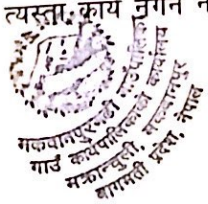 त्यस्ता कार्य नगर्न न
मकवानपुरगढी गाउँपालिका
गाउँ कार्यपालिकाको कार्यालय
मक्रान्चुली, मकवानपुर
बागमती प्रदेश, नेपाल